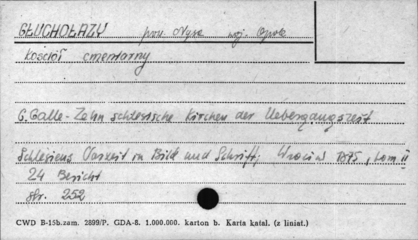 GŁUCHOŁAZY pow. Nysa woj. Opole
kościół cmentarny
C. Galle - Zehn schlesische Kirchen der Uebergangszeit
Schlesiens Vorzeit in Bild und Schrift, Wrocław 1875, tom II
24 Bericht
str. 252
CWD B-15b.zam. 2899/P. GDA-8. 1.000.000. karton b. Karta katal. (z liniat.)